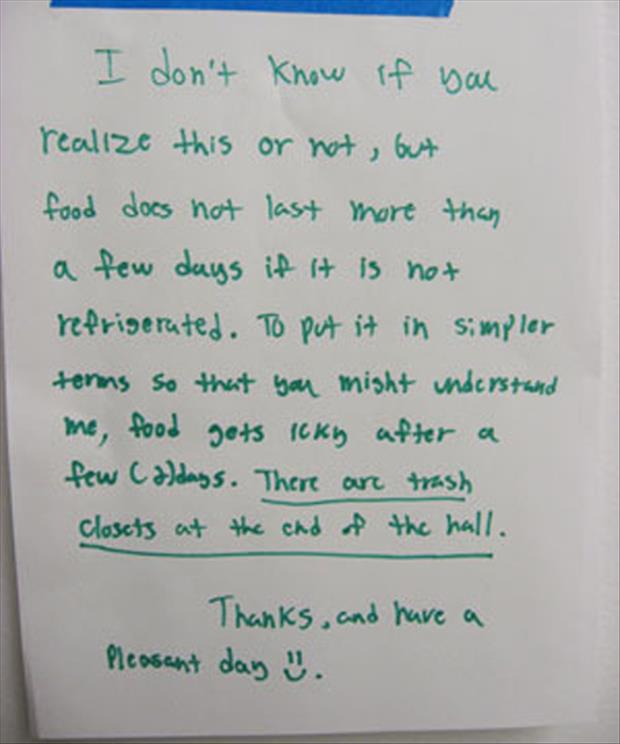 I don't know if you
realize this or not, but
food does not last more than
a few days if it is not
refrigerated. To put it in simpler
terms so that you might understand
me, food gets icky after a
few (2)days. There are trash
closets at the end of the hall.
Thanks, and have a
Pleasant day